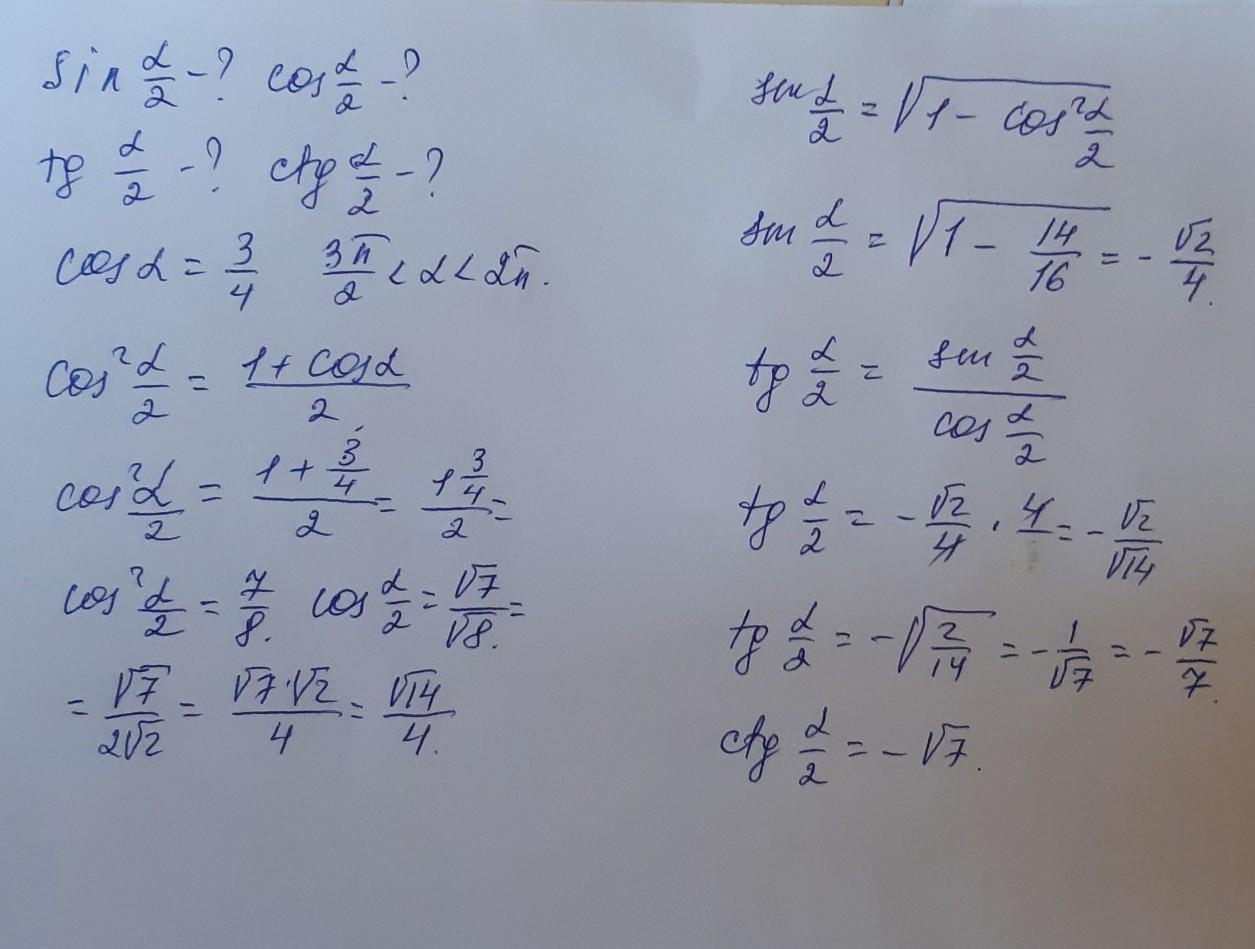 sin α/2 - ? cos α/2 - ?
tg α/2 - ? ctg α/2 - ?
cos α = 3/4 3π/2 < α < 2π.
cos² α/2 = (1 + cos α)/2
cos² α/2 = (1 + 3/4)/2 = (1 3/4)/2 =
cos² α/2 = 7/8. cos α/2 = √7/√8. =
= √7/(2√2) = (√7·√2)/4 = √14/4.
sin α/2 = √(1 - cos² α/2)
sin α/2 = √(1 - 14/16) = - √2/4.
tg α/2 = (sin α/2)/(cos α/2)
tg α/2 = - √2/4 · 4/ = - √2/√14
tg α/2 = - √(2/14) = - 1/√7 = - √7/7.
ctg α/2 = - √7.